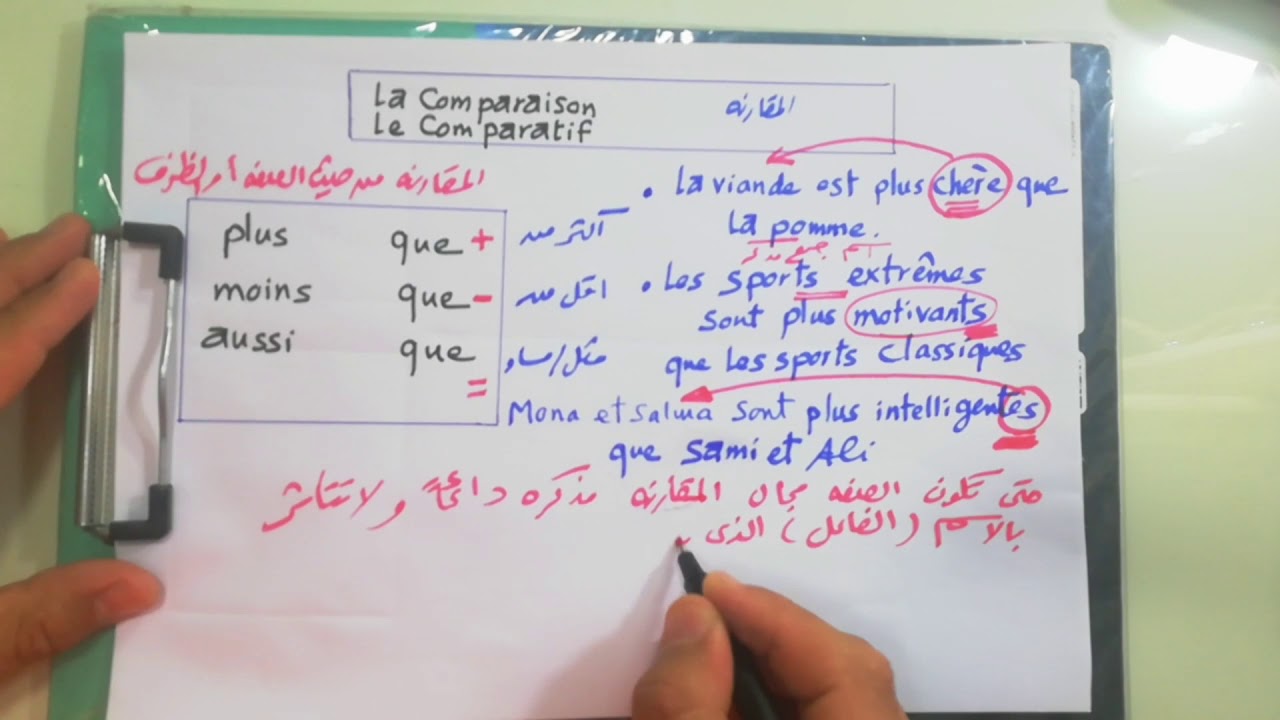 La Comparaison
Le Comparatif
المقارنه
المقارنه من حيث الصفه أو الظرف
plus que +
أكثر من
moins que -
اقل من
aussi que =
مثل/مساو
• La viande est plus chère que
La pomme.
اسم جمع مذكر
• Les sports extrêmes
sont plus motivants
que les sports classiques
Mona et Salma sont plus intelligentes
que Sami et Ali
متى تكون الصفه مجال المقارنه مذكره دائماً ولا تتأثر
بالاسم (الفاعل) الذى